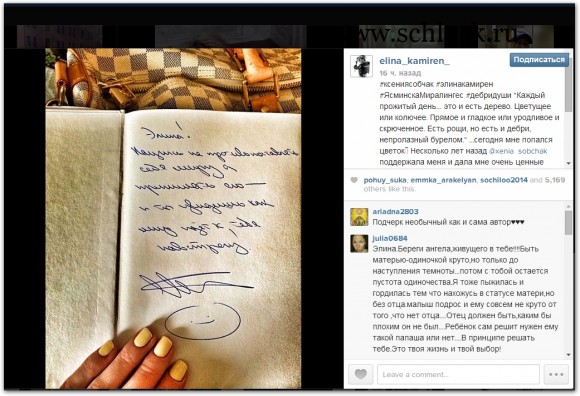 www.schl k.ru
elina_kamiren_
Подписаться
16 ч. назад
#ксениясобчак #элинакамирен
#ЯсминскаМиралингес #дебридуши "Каждый
прожитый день... это и есть дерево. Цветущее
или колючее. Прямое и гладкое или уродливое и
скрюченное. Есть рощи, но есть и дебри,
непролазный бурелом." ...сегодня мне попался
цветок? Несколько лет назад @xenia_sobchak
поддержала меня и дала мне очень ценные
pohuy_suka, emmka_arakelyan, sochiloo2014 and 5,169
others like this.
ariadna2803
Подчерк необычный как и сама автор♥♥♥
julia0684
Элина.Береги ангела,живущего в тебе!!!Быть
матерью-одиночкой круто,но только до
наступления темноты...потом с тобой остается
пустота одиночества.Я тоже пыжилась и
гордилась тем что нахожусь в статусе матери,но
без отца.малыш подрос и ему совсем не круто от
того ,что нет отца...Отец должен быть,каким бы
плохим он не был...Ребёнок сам решит нужен ему
такой папаша или нет...В принципе решать
тебе.Это твоя жизнь и твой выбор!
Leave a comment...